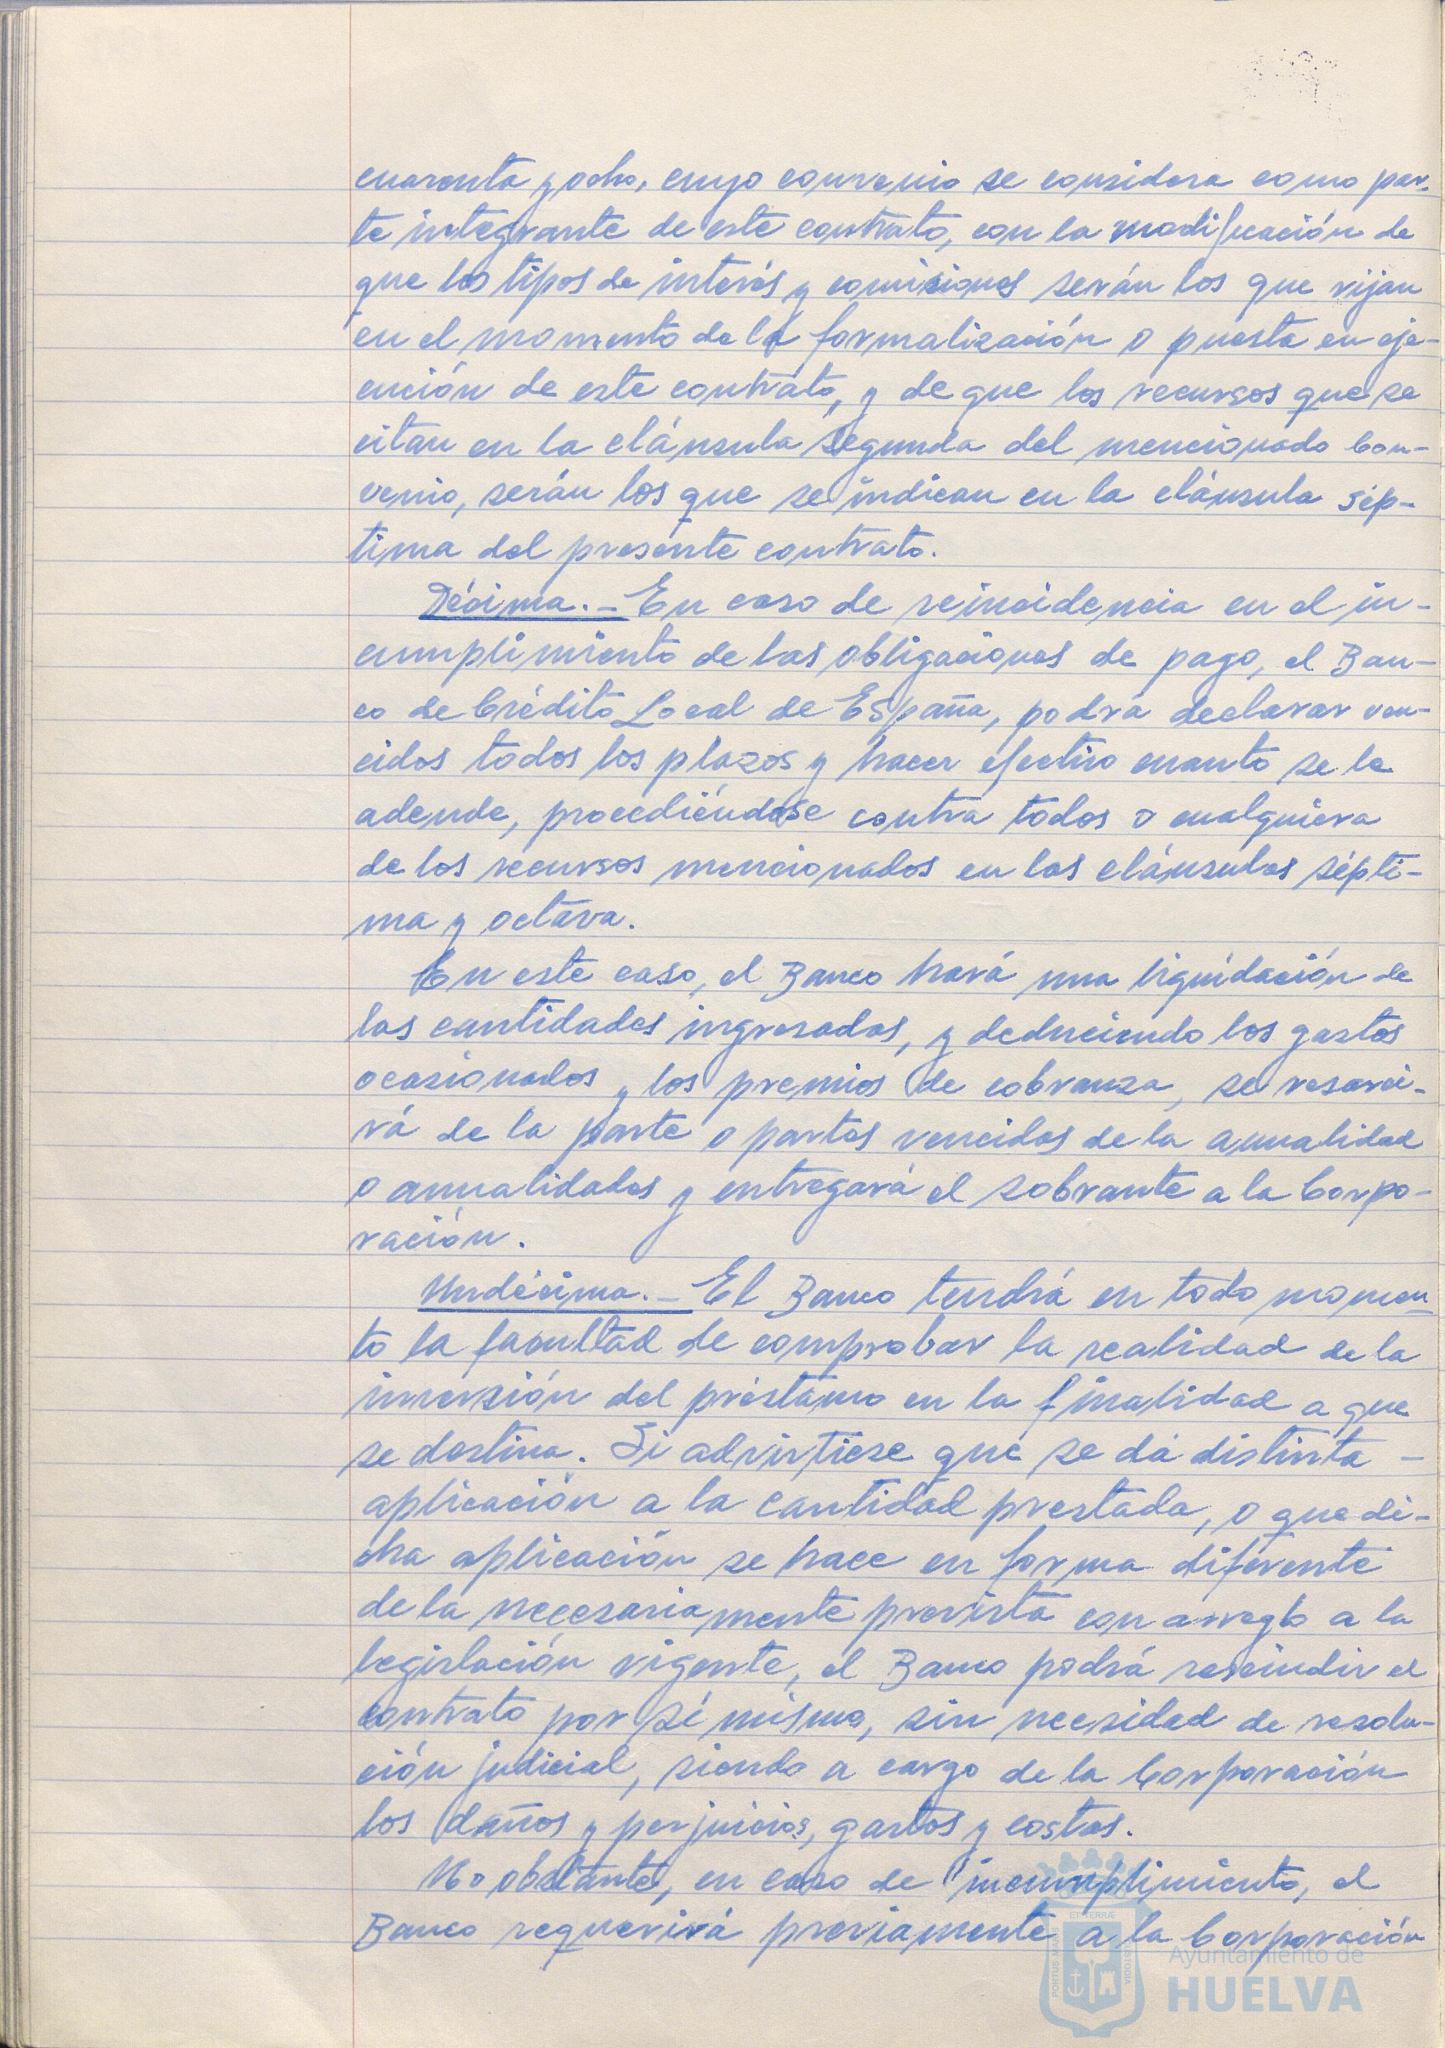 cuarenta y ocho, cuyo convenio se considera como par-
te integrante de este contrato, con la modificación de
que los tipos de interés y comisiones serán los que rijan
en el momento de la formalización o puesta en eje-
cución de este contrato, y de que los recursos que se
citan en la cláusula segunda del mencionado Con-
venio, serán los que se indican en la cláusula sép-
tima del presente contrato.
Décima.- En caso de reincidencia en el in-
cumplimiento de las obligaciones de pago, el Ban-
co de Crédito Local de España, podrá declarar ven-
cidos todos los plazos y hacer efectivo cuanto se le
adeude, procediéndose contra todos o cualquiera
de los recursos mencionados en las cláusulas sépti-
ma y octava.
En este caso, el Banco hará una liquidación de
las cantidades ingresadas, y deduciendo los gastos
ocasionados y los premios de cobranza, se resarci-
rá de la parte o partes vencidas de la anualidad
o anualidades y entregará el sobrante a la Corpo-
ración.
Undécima.- El Banco tendrá en todo momen-
to la facultad de comprobar la realidad de la
inversión del préstamo en la finalidad a que
se destina. Si advirtiese que se dá distinta -
aplicación a la cantidad prestada, o que di-
cha aplicación se hace en forma diferente
de la necesariamente prevista con arreglo a la
legislación vigente, el Banco podrá rescindir el
contrato por sí mismo, sin necesidad de resolu-
ción judicial, siendo a cargo de la Corporación
los daños y perjuicios, gastos y costas.
No obstante, en caso de incumplimiento, el
Banco requerirá previamente a la Corporación
Ayuntamiento de
HUELVA